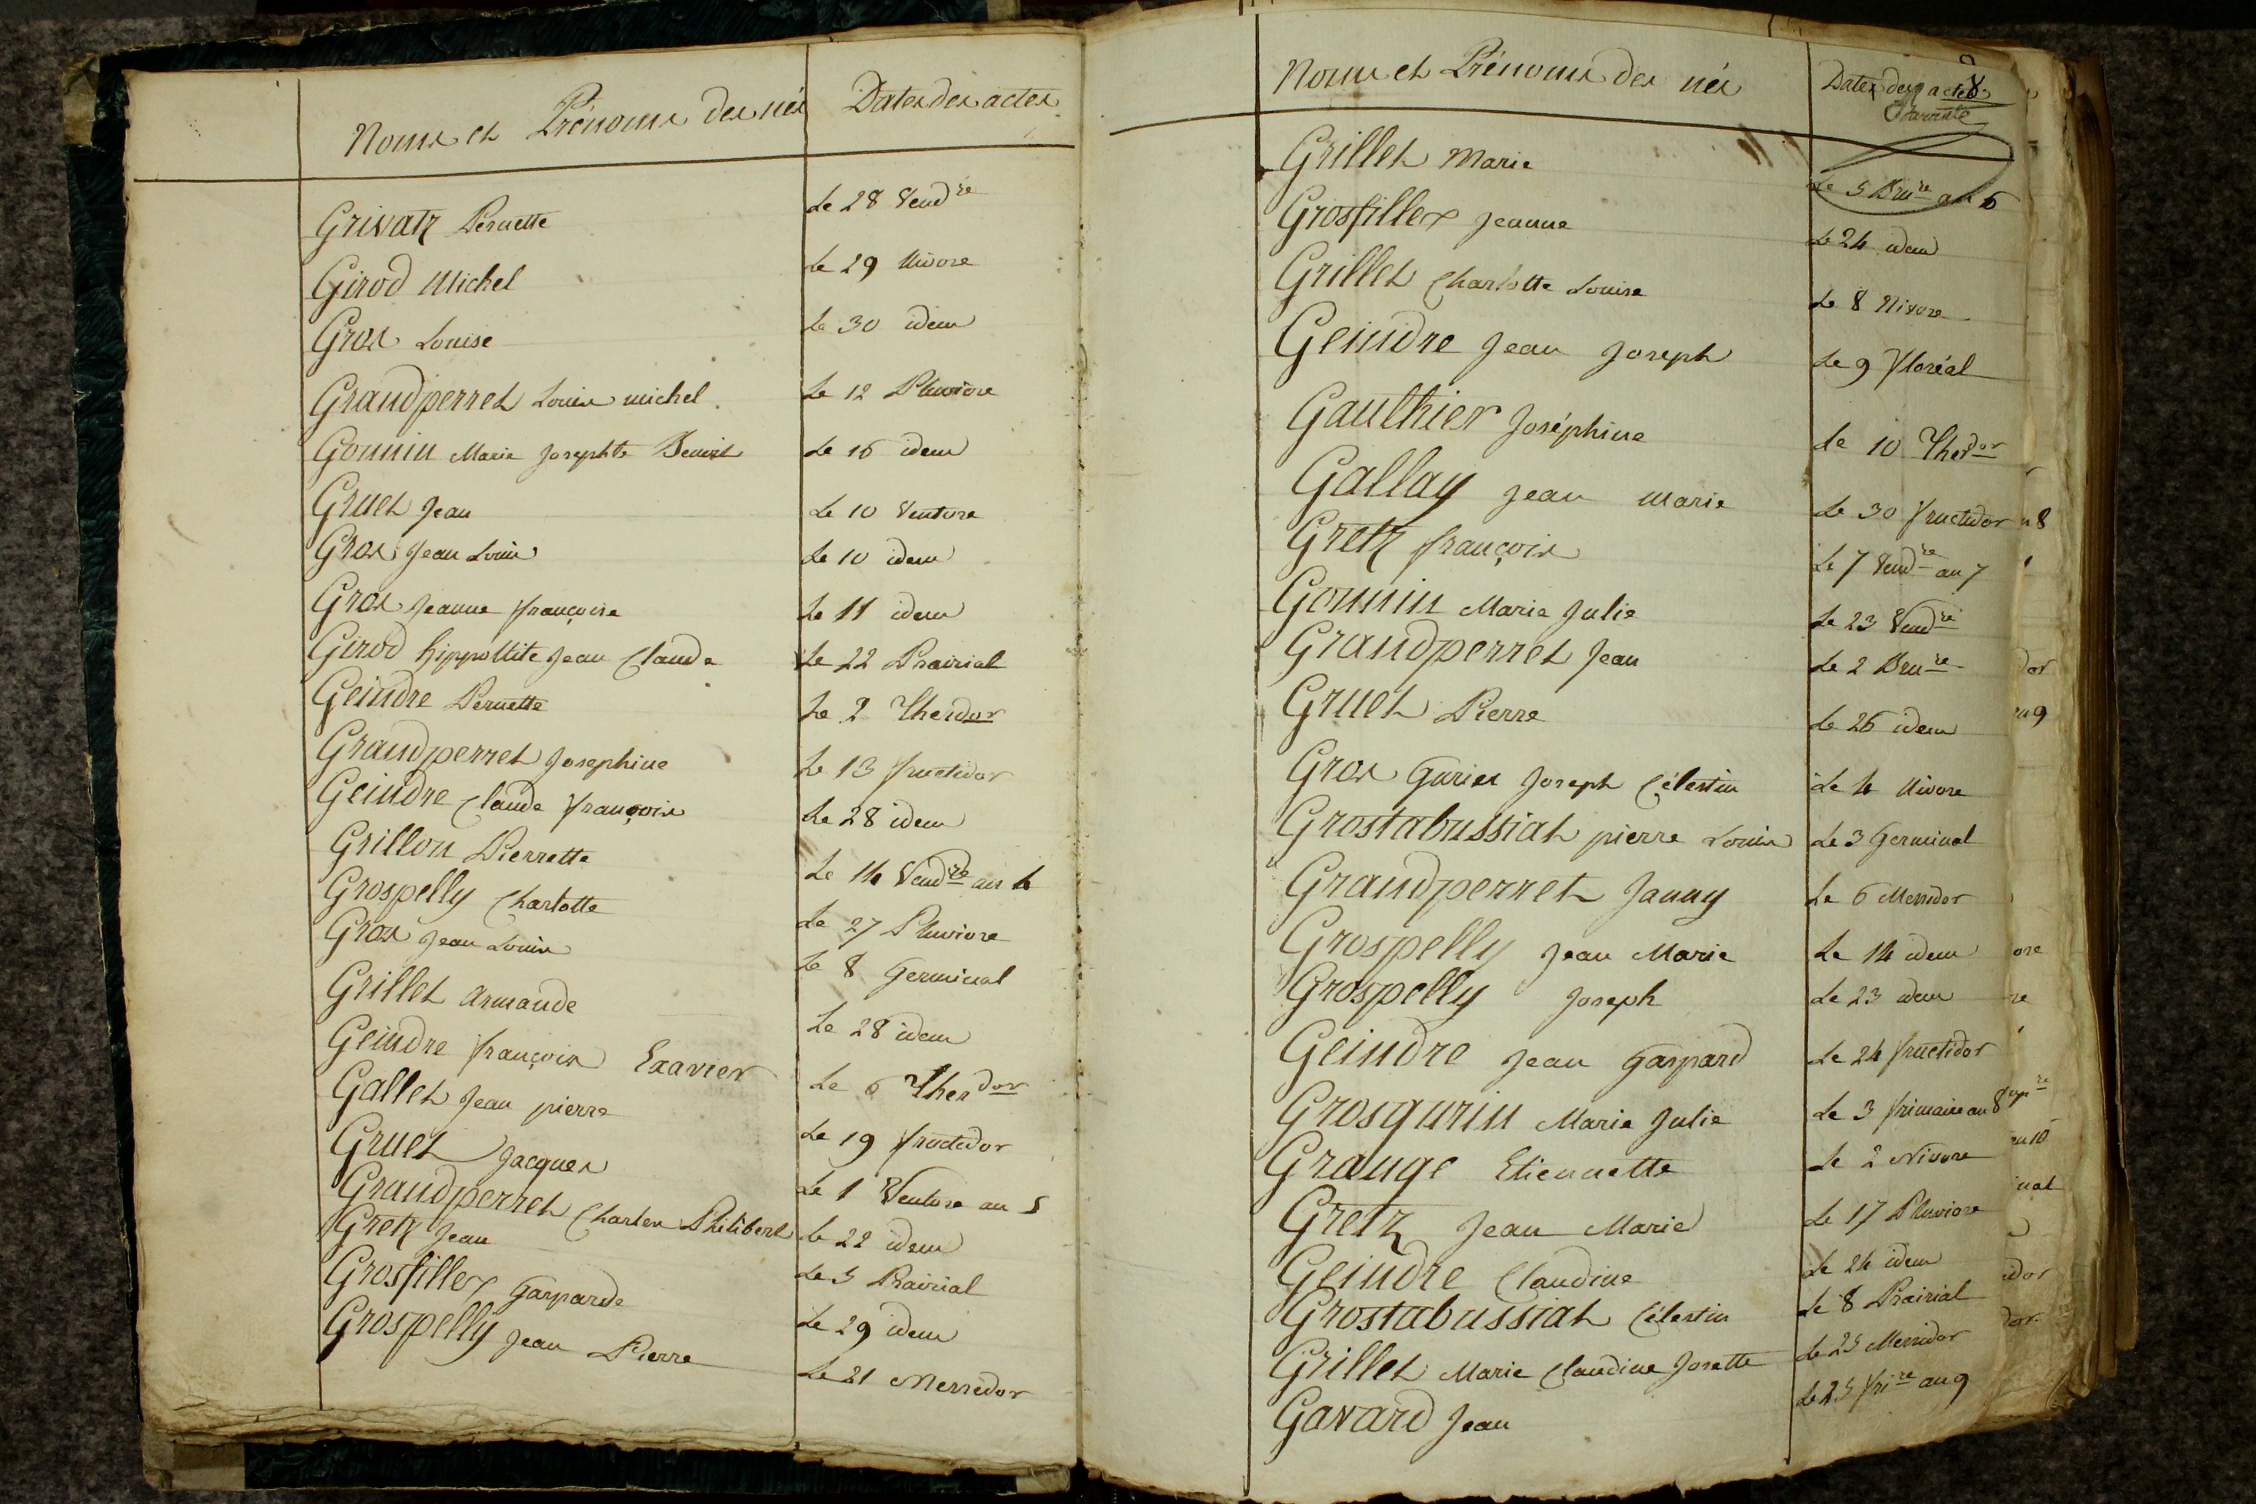 Noms et Prénoms des nés Dates des actes
Grivatz Pernette Le 28 Vendre
Girod Michel Le 29 Nivose
Gros Louise Le 30 idem
Grandperret Louis michel Le 12 Pluviose
Gonnin Marie Josephte Benoit Le 16 idem
Gruet Jean Le 10 Ventose
Gros Jean Louis Le 10 idem
Gros Jeanne françoise Le 11 idem
Girod hippollite Jean Claude Le 22 Prairial
Geindre Pernette Le 2 Therdor
Grandperret Josephine Le 13 fructidor
Geindre Claude françois Le 28 idem
Grillon Pierrette Le 14 Vendre an 4
Grospelly Charlotte Le 27 Pluviose
Gros Jean Louis Le 8 Germinal
Grillet armande Le 28 idem
Geindre françois Exavier Le 6 Therdor
Gallet Jean pierre Le 19 fructidor
Gruet Jacques Le 1 Ventose an 5
Grandperret Charles Philibert Le 22 idem
Gretz Jean Le 5 Prairial
Grosfillex Gasparde Le 29 idem
Grospelly Jean Pierre Le 21 Messidor
Noms et Prénoms des nés Dates des actes
8
Grillet Marie Le 5 Brure an 6
Grosfillex Jeanne Le 24 idem
Grillet Charlotte Louise Le 8 Nivose
Geindre Jean Joseph Le 9 floréal
Gaulthier Joséphine Le 10 Therdor
Gallay Jean marie Le 30 fructidor
Gretz françois Le 7 Vendre an 7
Gonnin Marie Julie Le 23 Vendre
Grandperret Jean Le 2 Brure
Gruet Pierre Le 26 idem
Gros Gurin Joseph Célestin Le 4 Nivose
Grostabussiat pierre Louis Le 3 Germinal
Grandperret Janny Le 6 Messidor
Grospelly Jean Marie Le 14 idem
Grospelly Joseph Le 23 idem
Geindre Jean Gaspard Le 24 fructidor
Grosgurin Marie Julie Le 3 frimaire an 8
Grange Etiennette Le 2 Nivose
Gretz Jean Marie Le 17 Pluviose
Geindre Claudine Le 24 idem
Grostabussiat Célestin Le 8 Prairial
Grillet Marie Claudine Josette Le 25 Messidor
Gavard Jean Le 25 frire an 9